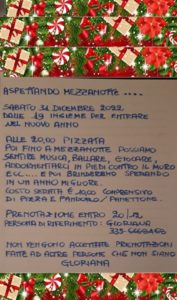 ASPETTANDO MEZZANOTTE ....
SABATO 31 DICEMBRE 2022
DALLE 19 INSIEME PER ENTRARE
NEL NUOVO ANNO
ALLE 20,00 PIZZATA
POI FINO A MEZZANOTTE POSSIAMO
SENTIRE MUSICA, BALLARE, GIOCARE,
ADDORMENTARCI IN PIEDI CONTRO IL MURO
ECC.... E POI BRINDEREMO SPERANDO
IN UN ANNO MIGLIORE.
COSTO SERATA È 20,00 COMPRENSIVO
DI PIZZA E PANDORO/PANETTONE.
PRENOTAZIONE ENTRO 20/12
PERSONA DI RIFERIMENTO: GLORIANA
NON VENGONO ACCETTATE PRENOTAZIONI
FATTE AD ALTRE PERSONE CHE NON SIANO
GLORIANA